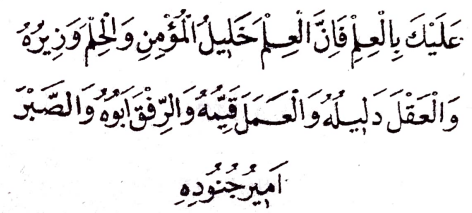 عَلَيْكَ بِالْعِلْمِ فَاِنَّ الْعِلْمَ خَلِيْلُ الْمُؤْمِنِ وَالْحِلْمَ وَزِيْرُهُ
وَالْعَقْلَ دَلِيْلُهُ وَالْعَمَلَ قَيِّمُهُ وَالرِّفْقَ اَبُوْهُ وَالصَّبْرَ
اَمِيْرُ جُنُوْدِهِ